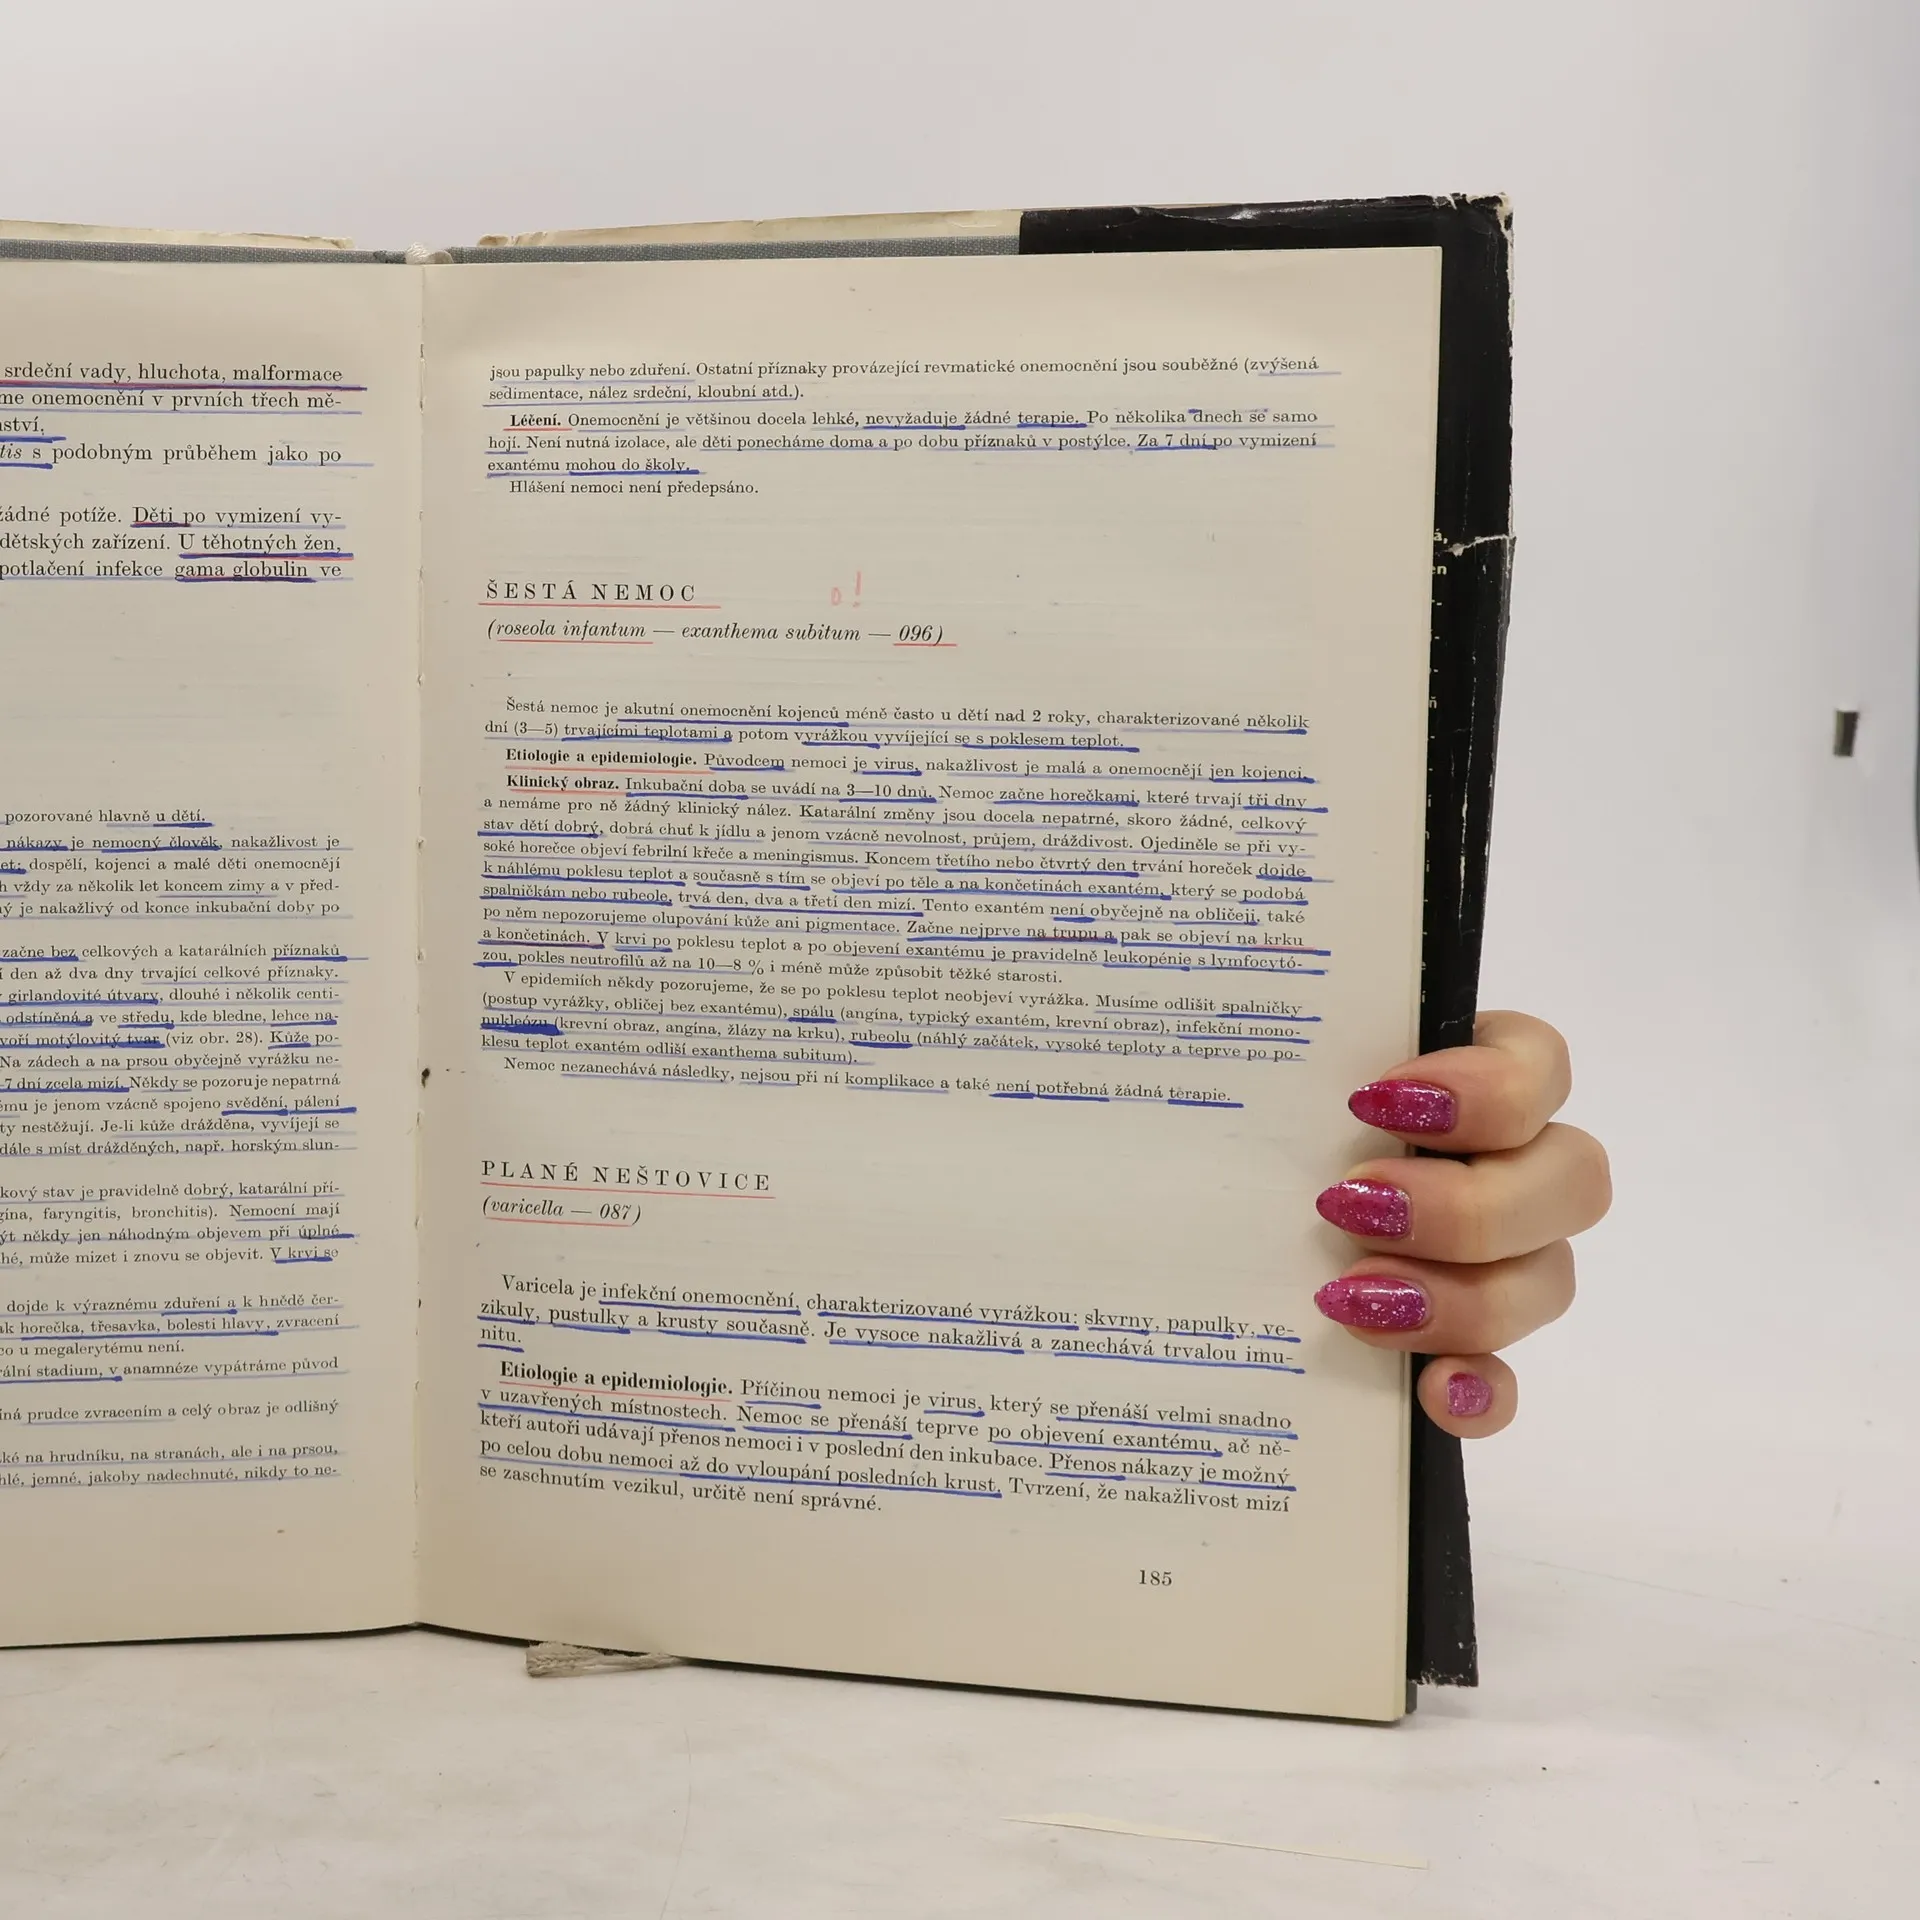 srdeční vady, hluchota, malformace
me onemocnění v prvních třech mě-
ství.
tis s podobným průběhem jako po
žádné potíže. Děti po vymizení vy-
dětských zařízení. U těhotných žen,
potlačení infekce gama globulin ve
pozorované hlavně u dětí.
nákazy je nemocný člověk, nakažlivost je
let; dospělí, kojenci a malé děti onemocnějí
h vždy za několik let koncem zimy a v před-
ný je nakažlivý od konce inkubační doby po
začne bez celkových a katarálních příznaků
í den až dva dny trvající celkové příznaky.
girlandovité útvary, dlouhé i několik centi-
odstíněná a ve středu, kde bledne, lehce na-
voří motýlovitý tvar (viz obr. 28). Kůže po-
Na zádech a na prsou obyčejně vyrážku ne-
–7 dní zcela mizí. Někdy se pozoruje nepatrná
ému je jenom vzácně spojeno svědění, pálení
ty nestěžují. Je-li kůže drážděna, vyvíjejí se
dále s míst drážděných, např. horským slun-
kový stav je pravidelně dobrý, katarální pří-
gína, faryngitis, bronchitis). Nemocní mají
ýt někdy jen náhodným objevem při úplné
hé, může mizet i znovu se objevit. V krvi se
dojde k výraznému zduření a k hnědě čer-
ak horečka, třesavka, bolesti hlavy, zvracení
co u megalerytému není.
rální stadium, v anamnéze vypátráme původ
íná prudce zvracením a celý obraz je odlišný
ké na hrudníku, na stranách, ale i na prsou,
hlé, jemné, jakoby nadechnuté, nikdy to ne-
jsou papulky nebo zduření. Ostatní příznaky provázející revmatické onemocnění jsou souběžné (zvýšená
sedimentace, nález srdeční, kloubní atd.).
Léčení. Onemocnění je většinou docela lehké, nevyžaduje žádné terapie. Po několika dnech se samo
hojí. Není nutná izolace, ale děti ponecháme doma a po dobu příznaků v postýlce. Za 7 dní po vymizení
exantému mohou do školy.
Hlášení nemoci není předepsáno.
ŠESTÁ NEMOC o!
(roseola infantum — exanthema subitum — 096)
Šestá nemoc je akutní onemocnění kojenců méně často u dětí nad 2 roky, charakterizované několik
dní (3—5) trvajícími teplotami a potom vyrážkou vyvíjející se s poklesem teplot.
Etiologie a epidemiologie. Původcem nemoci je virus, nakažlivost je malá a onemocnějí jen kojenci.
Klinický obraz. Inkubační doba se uvádí na 3—10 dnů. Nemoc začne horečkami, které trvají tři dny
a nemáme pro ně žádný klinický nález. Katarální změny jsou docela nepatrné, skoro žádné, celkový
stav dětí dobrý, dobrá chuť k jídlu a jenom vzácně nevolnost, průjem, dráždivost. Ojediněle se při vy-
soké horečce objeví febrilní křeče a meningismus. Koncem třetího nebo čtvrtý den trvání horeček dojde
k náhlému poklesu teplot a současně s tím se objeví po těle a na končetinách exantém, který se podobá
spalničkám nebo rubeole, trvá den, dva a třetí den mizí. Tento exantém není obyčejně na obličeji, také
po něm nepozorujeme olupování kůže ani pigmentace. Začne nejprve na trupu a pak se objeví na krku
a končetinách. V krvi po poklesu teplot a po objevení exantému je pravidelně leukopénie s lymfocytó-
zou, pokles neutrofilů až na 10—8 % i méně může způsobit těžké starosti.
V epidemiích někdy pozorujeme, že se po poklesu teplot neobjeví vyrážka. Musíme odlišit spalničky
(postup vyrážky, obličej bez exantému), spálu (angína, typický exantém, krevní obraz), infekční mono-
nukleózu (krevní obraz, angína, žlázy na krku), rubeolu (náhlý začátek, vysoké teploty a teprve po po-
klesu teplot exantém odliší exanthema subitum).
Nemoc nezanechává následky, nejsou při ní komplikace a také není potřebná žádná terapie.
PLANÉ NEŠTOVICE
(varicella — 087)
Varicela je infekční onemocnění, charakterizované vyrážkou: skvrny, papulky, ve-
zikuly, pustulky a krusty současně. Je vysoce nakažlivá a zanechává trvalou imu-
nitu.
Etiologie a epidemiologie. Příčinou nemoci je virus, který se přenáší velmi snadno
v uzavřených místnostech. Nemoc se přenáší teprve po objevení exantému, ač ně-
kteří autoři udávají přenos nemoci i v poslední den inkubace. Přenos nákazy je možný
po celou dobu nemoci až do vyloupání posledních krust. Tvrzení, že nakažlivost mizí
se zaschnutím vezikul, určitě není správné.
185